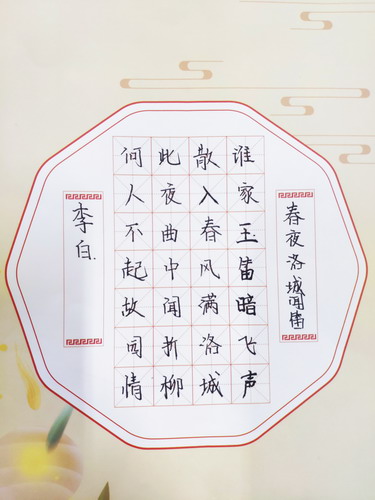 春夜洛城闻笛
谁家玉笛暗飞声
散入春风满洛城
此夜曲中闻折柳
何人不起故园情
李白.